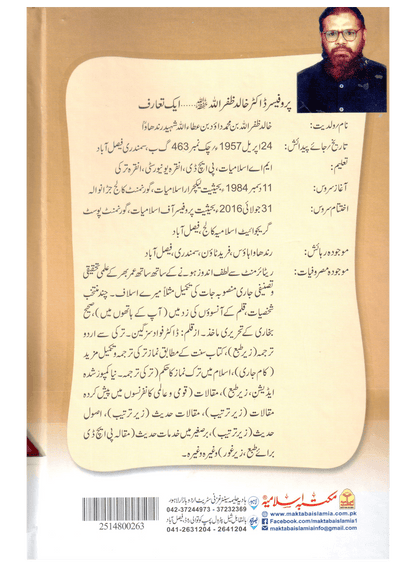 پروفیسر ڈاکٹر خالد ظفر اللہ ﷾.....ایک تعارف
نام رولدیت: خالد ظفر اللہ بن محمد داؤد بن عطاء اللہ شہید رندھاوا
تاریخ رجائے پیدائش: 24 اپریل 1957ء رچک نمبر 463 گ ب، سمندری فیصل آباد
تعلیم: ایم اے اسلامیات، پی ایچ ڈی، انقرہ یونیورسٹی، انقرہ ترکی
آغاز سروس: 11 دسمبر 1984، بحیثیت لیکچرار اسلامیات، گورنمنٹ کالج جڑانوالہ
اختتام سروس: 31 جولائی 2016، بحیثیت پروفیسر آف اسلامیات، گورنمنٹ پوسٹ
گریجوایٹ اسلامیہ کالج، فیصل آباد
موجودہ رہائش: رندھاوا ہاؤس، فرید ٹاؤن، سمندری، فیصل آباد
موجودہ مصروفیات: ریٹائرمنٹ سے لطف اندوز ہونے کے ساتھ ساتھ عمر بھر کے علمی تحقیقی
و تصنیفی جاری منصوبہ جات کی تکمیل مثلاً میرے اسلاف۔ چند منتخب
شخصیات، قلم کے آنسوؤں کی زد میں (آپ کے ہاتھوں میں)، صحیح
بخاری کے تحریری ماخذ۔ از قلم: ڈاکٹر فواد سزگین۔ ترکی سے اردو
ترجمہ (زیر طبع)، کتاب سنت کے مطابق نماز ترکی ترجمہ و تکمیل مزید
(کام جاری)، اسلام میں ترک نماز کا حکم (ترکی ترجمہ۔ نیا کمپوز شدہ
ایڈیشن، زیر طبع)، مقالات (قومی و عالمی کانفرنسوں میں پیش کردہ
مقالات (زیر ترتیب)، مقالات حدیث (زیر ترتیب)، اصول
حدیث (زیر ترتیب)، برصغیر میں خدمات حدیث (مقالہ پی ایچ ڈی
برائے طبع، زیر غور) وغیرہ وغیرہ۔
2514800263
لاہور
ہادیہ حلیمہ سینٹر غزنی سٹریٹ اردو بازار لاہور
042-37244973 - 37232369
فیصل آباد
041-2631204 - 2641204
مکتبہ اسلامیہ
www.maktabaislamia.com.pk
Facebook.com/maktabaislamia1
maktabaislamiainfo@gmail.com